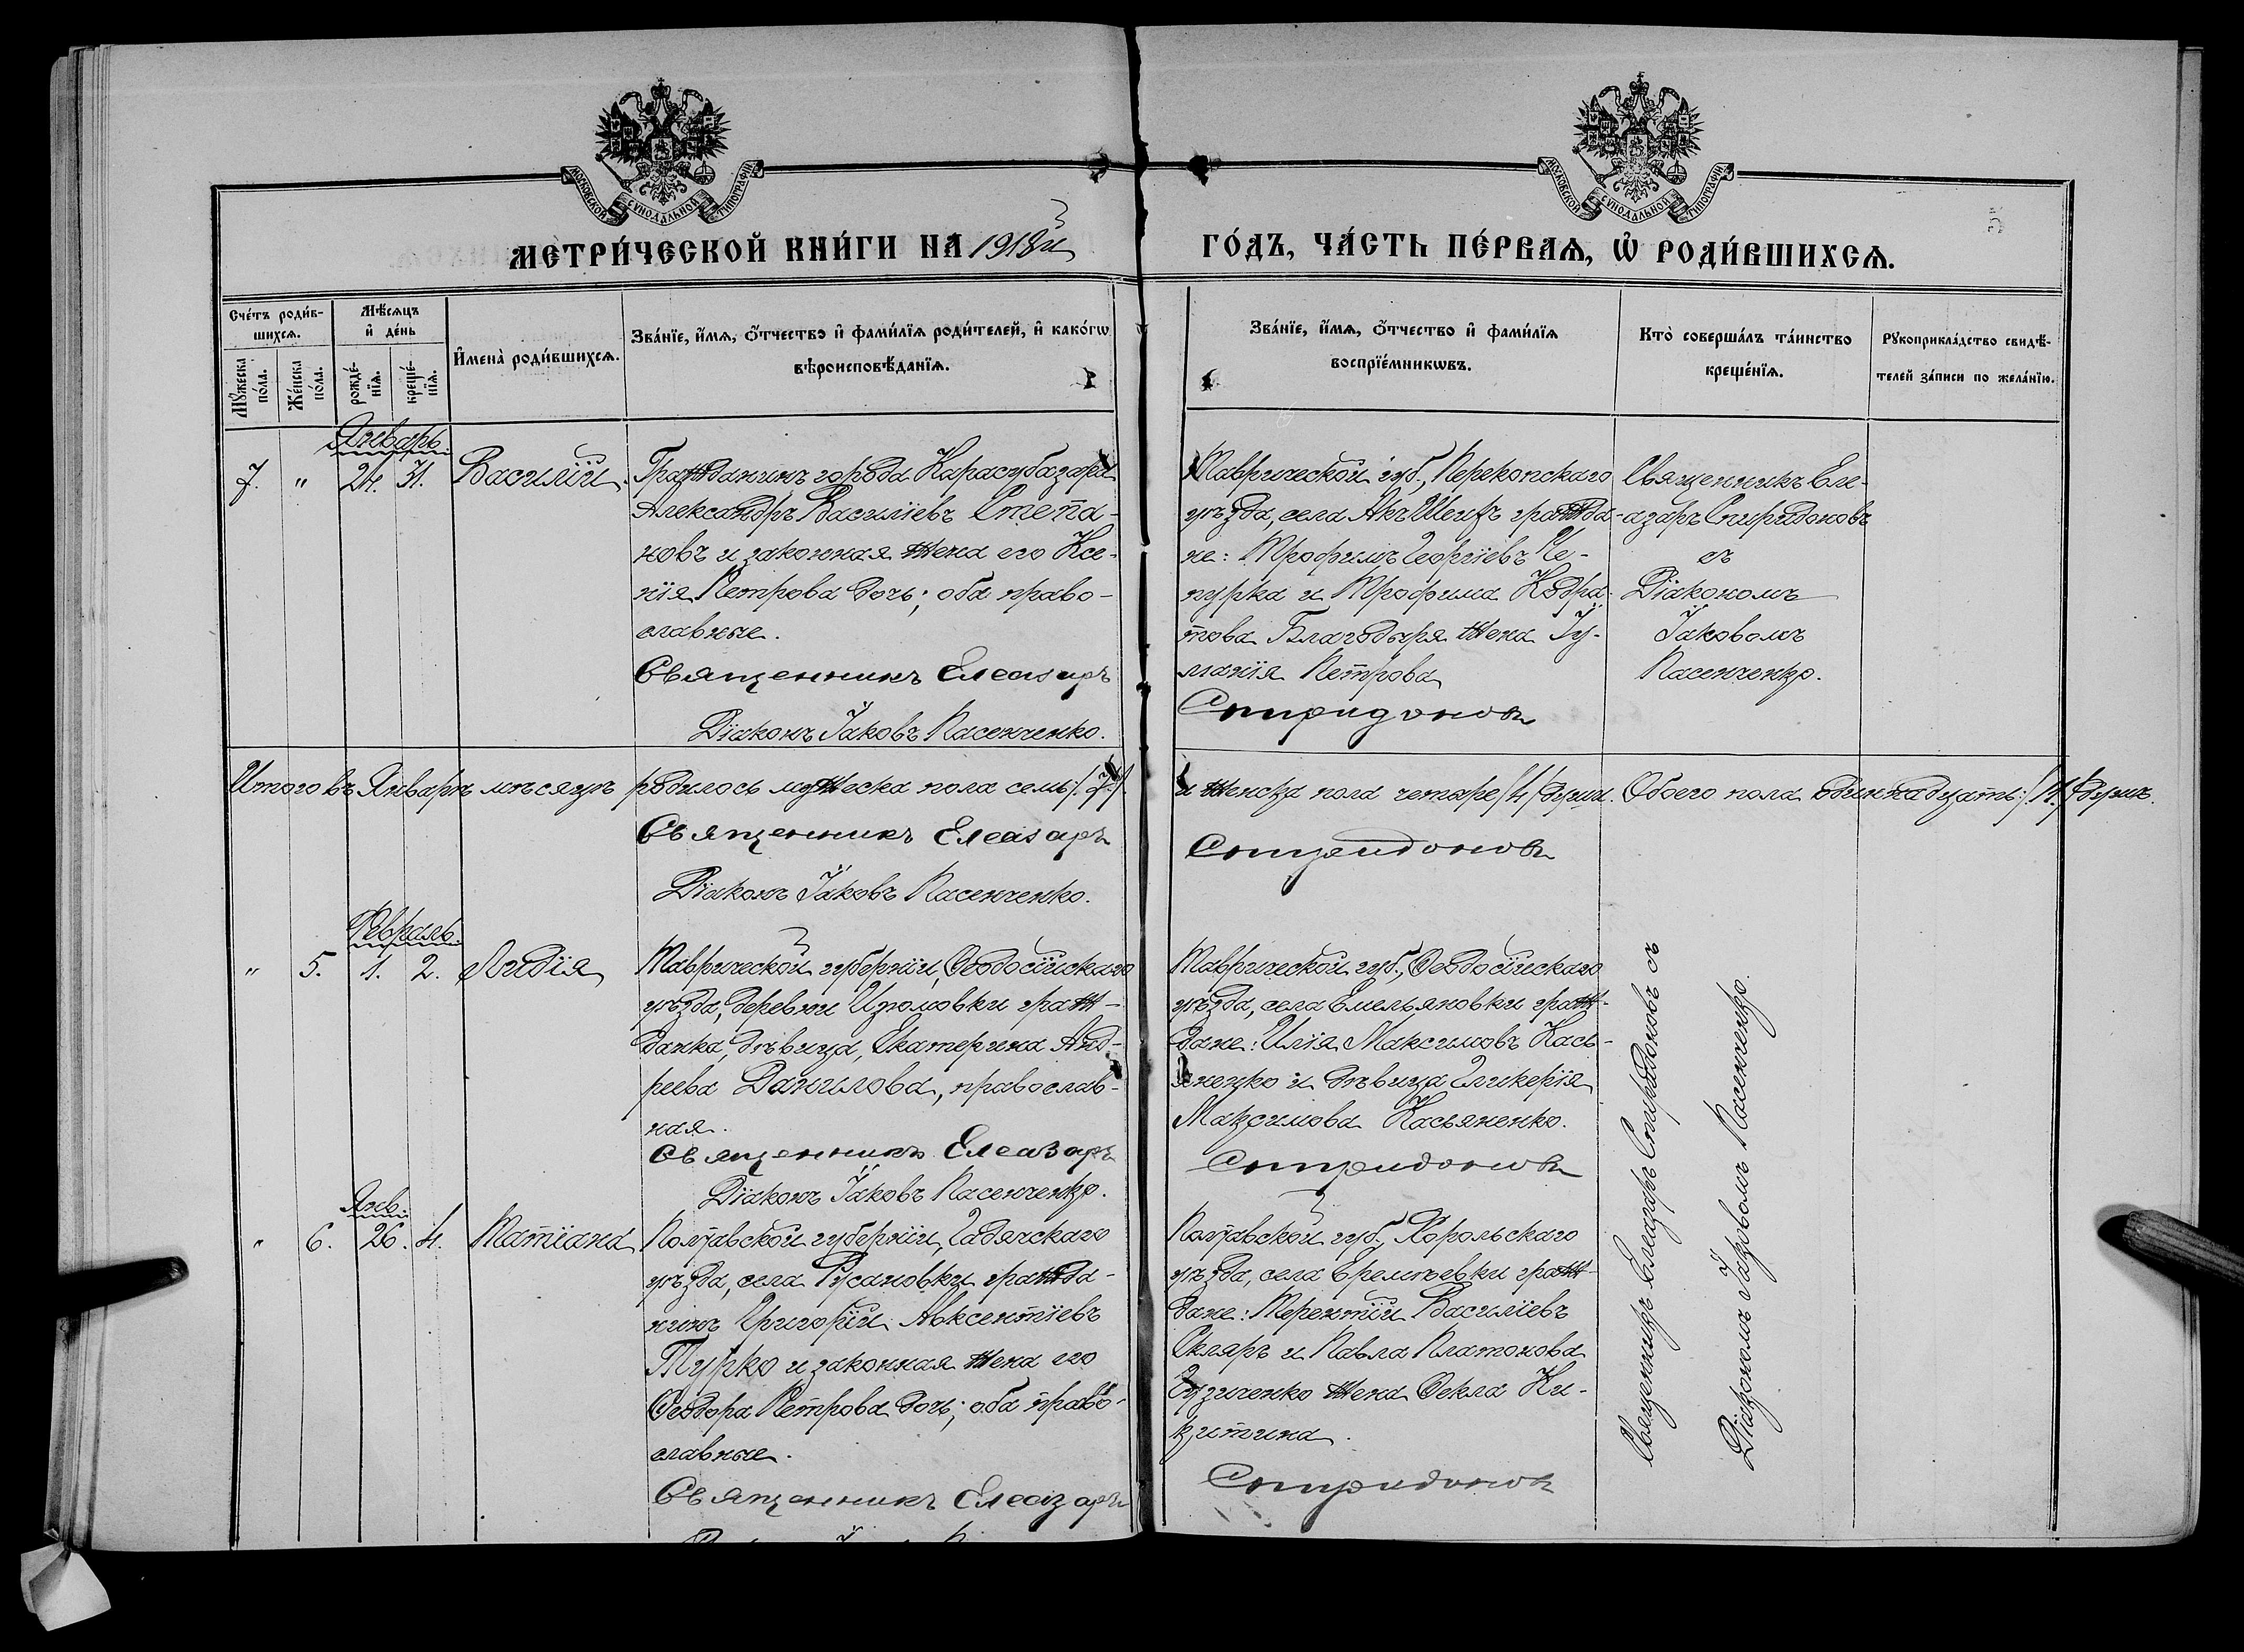 МОСКОВСКОЙ СѴНОДАЛЬНОЙ ТИПОГРАФІИ
МОСКОВСКОЙ СѴНОДАЛЬНОЙ ТИПОГРАФІИ
МЕТРИ́ЧЕСКОЙ КНИ́ГИ НА 1918й ГО́ДЪ, ЧА́СТЬ ПЕ́РВАѦ, Ѡ҆ РОДИ́ВШИХСѦ.
Сче́тъ роди́в-
шихсѧ.
Мꙋ́жеска по́ла.
Же́нска по́ла.
Мѣ́сяцъ
и҆ де́нь
рожде́-
нїѧ.
креще́-
нїѧ.
И҆мена̀ роди́вшихсѧ.
Зва́нїе, и҆́мѧ, ѻ҆́тчество и҆ фами́лїѧ роди́телей, и҆ како́гѡ
вѣроисповѣ́данїѧ.
Зва́нїе, и҆́мѧ, ѻ҆́тчество и҆ фами́лїѧ
воспрїе́мникѡвъ.
Кто̀ соверша́лъ та́инство
креще́нїѧ.
Рꙋкоприкла́дство свидѣ́-
телей за́писи по жела́нїю.
Январь
7. " 24. 31. Василій.
Гражданинъ города Карасубазара
Александръ Василіевъ Степа-
новъ и законная жена его Ксе-
нія Петрова дочь; оба право-
славные.
Священникъ Елеазаръ
Діаконъ Іаковъ Пасенченко.
Таврической губ., Перекопскаго
уѣзда, села Акъ Шеихъ гражда-
не: Трофимъ Георгіевъ Че-
пурка и Трофима Кодра-
това Благодыря жена Іу-
манія Петрова
Спиридоновъ
Священникъ Еле-
азаръ Спиридоновъ
съ
Діакономъ
Іаковомъ
Пасенченко.
Итого въ Январѣ мѣсяцѣ родилось мужеска пола семь /7/ и женска пола четыре /4/ души. Обоего пола одиннадцать /11/ душъ.
Священникъ Елеазаръ Спиридоновъ
Діаконъ Іаковъ Пасенченко.
Февраль.
" 5. 1. 2. Лидія
Таврической губерніи, Ѳеодосійскаго
уѣзда, деревни Изюмовки граж-
данка, дѣвица, Екатерина Анд-
реева Данилова, православ-
ная.
Священникъ Елеазаръ
Діаконъ Іаковъ Пасенченко.
Таврической губ., Ѳеодосійскаго
уѣзда, села Емельяновки граж-
дане: Илія Максимовъ Кась-
яненко и дѣвица Гликерія
Максимова Касьяненко.
Спиридоновъ
Священникъ Елеазаръ Спиридоновъ съ
Діакономъ Іаковомъ Пасенченко.
Янв.
" 6. 26. 4. Татіана
Полтавской губерніи, Гадячскаго
уѣзда, села Русановки гражда-
нинъ Григорій Авксентіевъ
Турко и законная жена его
Ѳеодора Петрова дочь; оба право-
славные.
Священникъ Елеазаръ
Полтавской губ., Хорольскаго
уѣзда, села Еремѣевки граж-
дане: Терентій Василіевъ
Скляръ и Павла Платонова
жена Ѳекла Ни-
китина.
Спиридоновъ